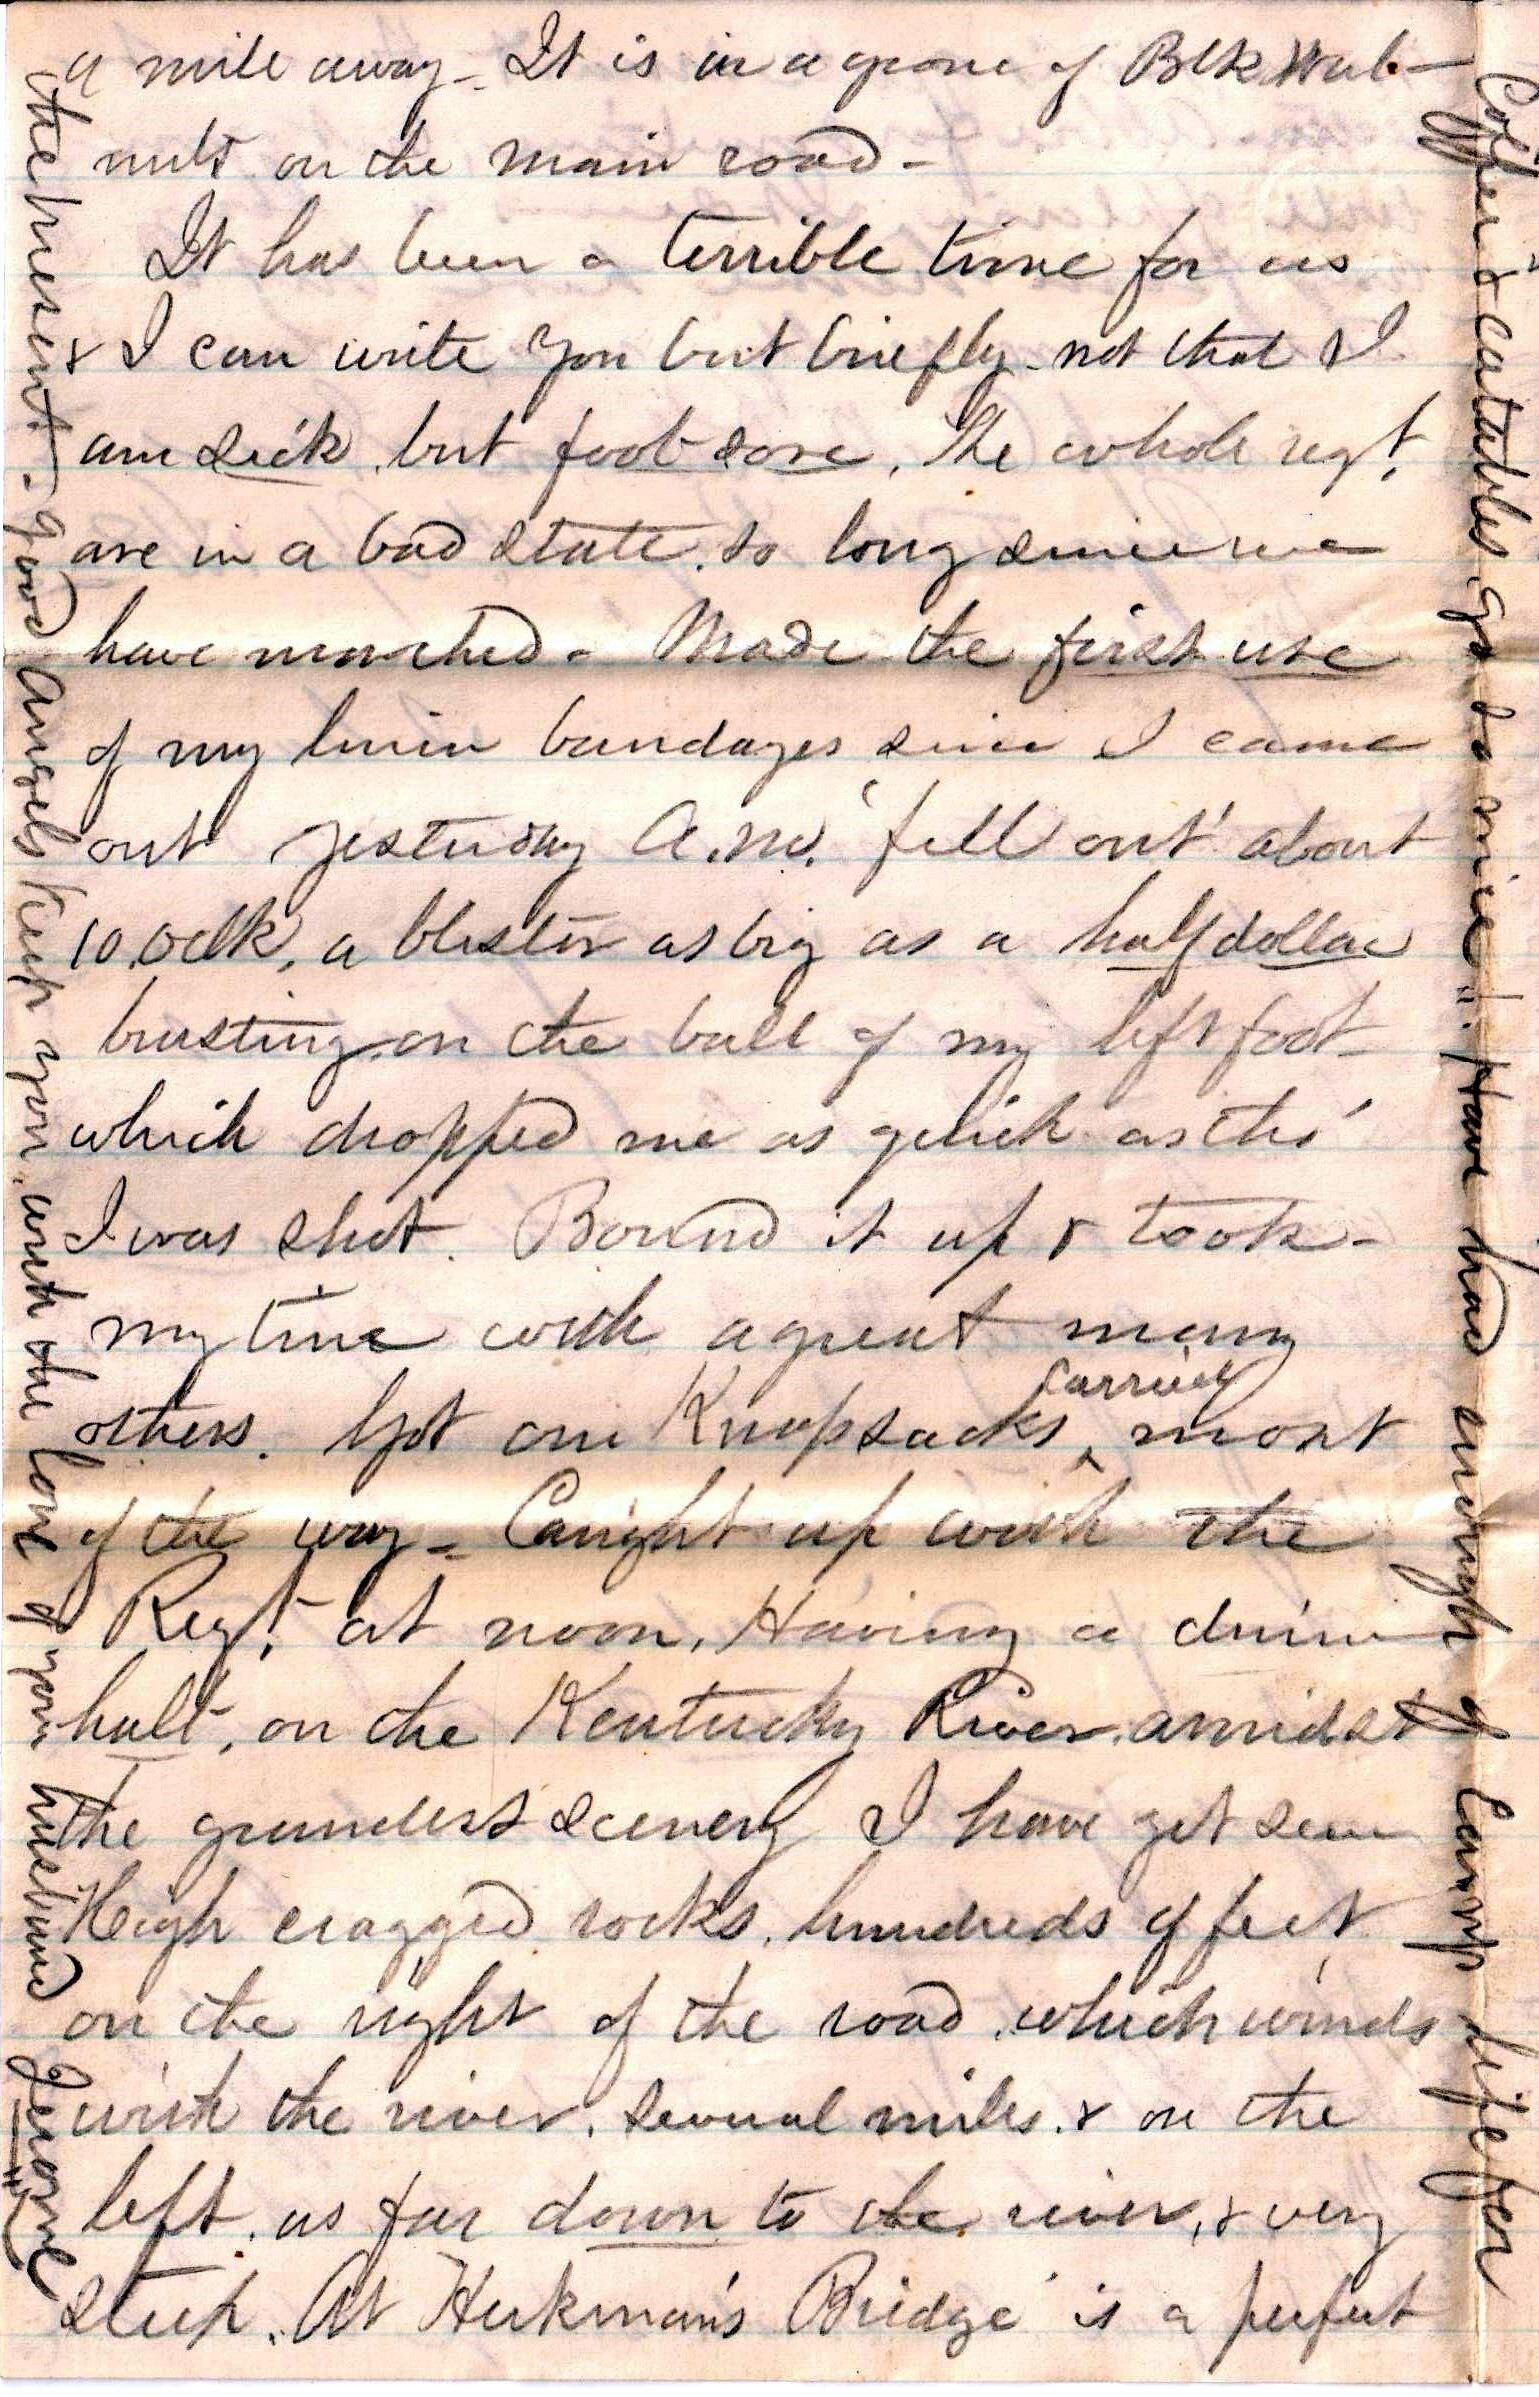 a mile away - It is in a grove of Blk Wal-
nuts on the main road -
It has been a terrible time for us
& I can write you but briefly - not that I
am sick, but foot-sore, The whole regt.
are in a bad state, so long since we
have marched - Made the first use
of my linin bandages since I came
out yesterday A.M. 'fell out' about
10.Oclk, a blister as big as a half dollar
bursting on the ball of my left foot -
which dropped me as quick as tho'
I was shot. Bound it up & took -
my time with a great many
others. Got our Knapsacks carried most
of the way - Caught up with the
Regt. at noon, Having a dinner
halt, on the Kentucky River, amidst
the grandest scenery I have yet seen
High cragged rocks, hundreds of feet
on the right of the road, which winds
with the river, several miles, & on the
left, as far down to the river, & very
steep, At Hickman's Bridge is a perfect
Coffee & eatables go so nice". Have had enough of Camp life for
the present - good Angels keep you, with the love of your husband
Jerome"